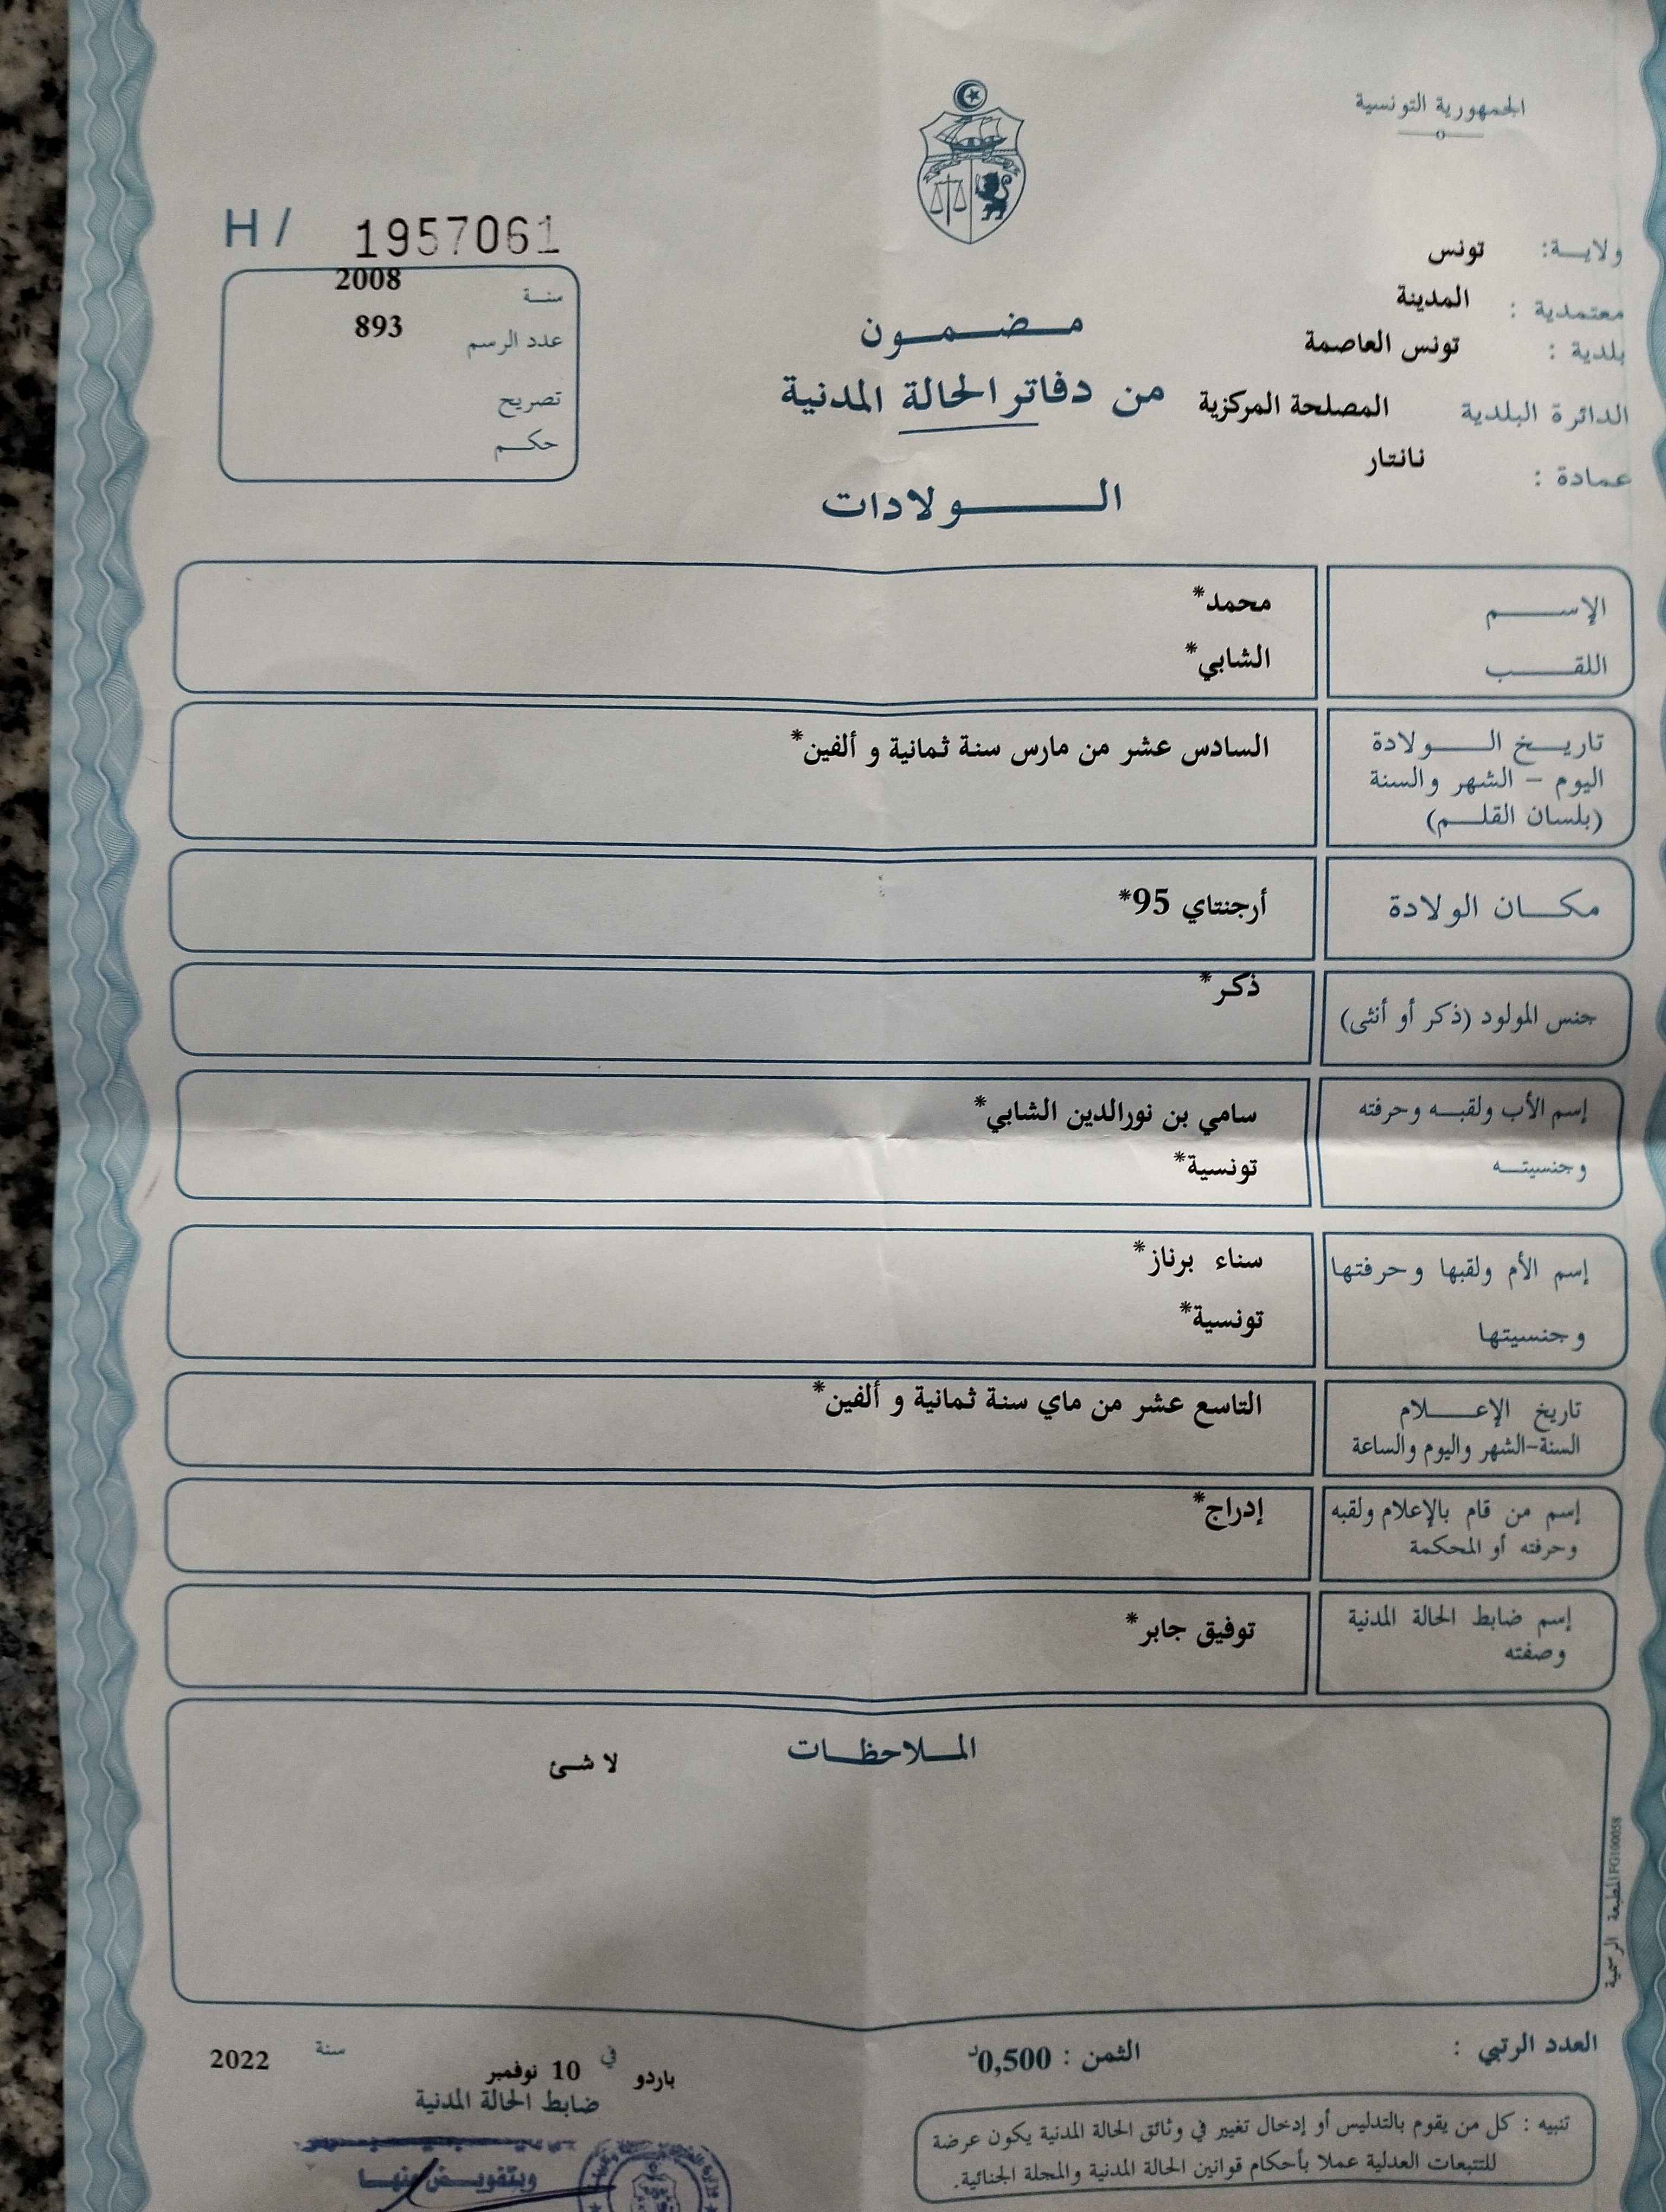 الجمهورية التونسية
H / 1957061
ولاية: تونس
معتمدية : المدينة
بلدية : تونس العاصمة
الدائرة البلدية المصلحة المركزية
عمادة : نانتار
سنة 2008
عدد الرسم 893
تصريح
حكم
مضمون
من دفاتر الحالة المدنية
الولادات
الإسم محمد*
اللقب الشابي*
تاريخ الولادة السادس عشر من مارس سنة ثمانية و ألفين*
اليوم - الشهر والسنة
(بلسان القلم)
مكان الولادة أرجنتاي 95*
جنس المولود (ذكر أو أنثى) ذكر*
إسم الأب ولقبه وحرفته سامي بن نورالدين الشابي*
وجنسيته تونسية*
إسم الأم ولقبها وحرفتها سناء برناز*
وجنسيتها تونسية*
تاريخ الإعلام التاسع عشر من ماي سنة ثمانية و ألفين*
السنة-الشهر واليوم والساعة
إسم من قام بالإعلام ولقبه إدراج*
وحرفته أو المحكمة
إسم ضابط الحالة المدنية توفيق جابر*
وصفته
الملاحظات
لا شئ
المطبعة الرسمية FG100058
العدد الرتبي :
الثمن : 0,500د
باردو في 10 نوفمبر سنة 2022
ضابط الحالة المدنية
وبتفويض منها
تنبيه : كل من يقوم بالتدليس أو إدخال تغيير في وثائق الحالة المدنية يكون عرضة
للتتبعات العدلية عملا بأحكام قوانين الحالة المدنية والمجلة الجنائية.